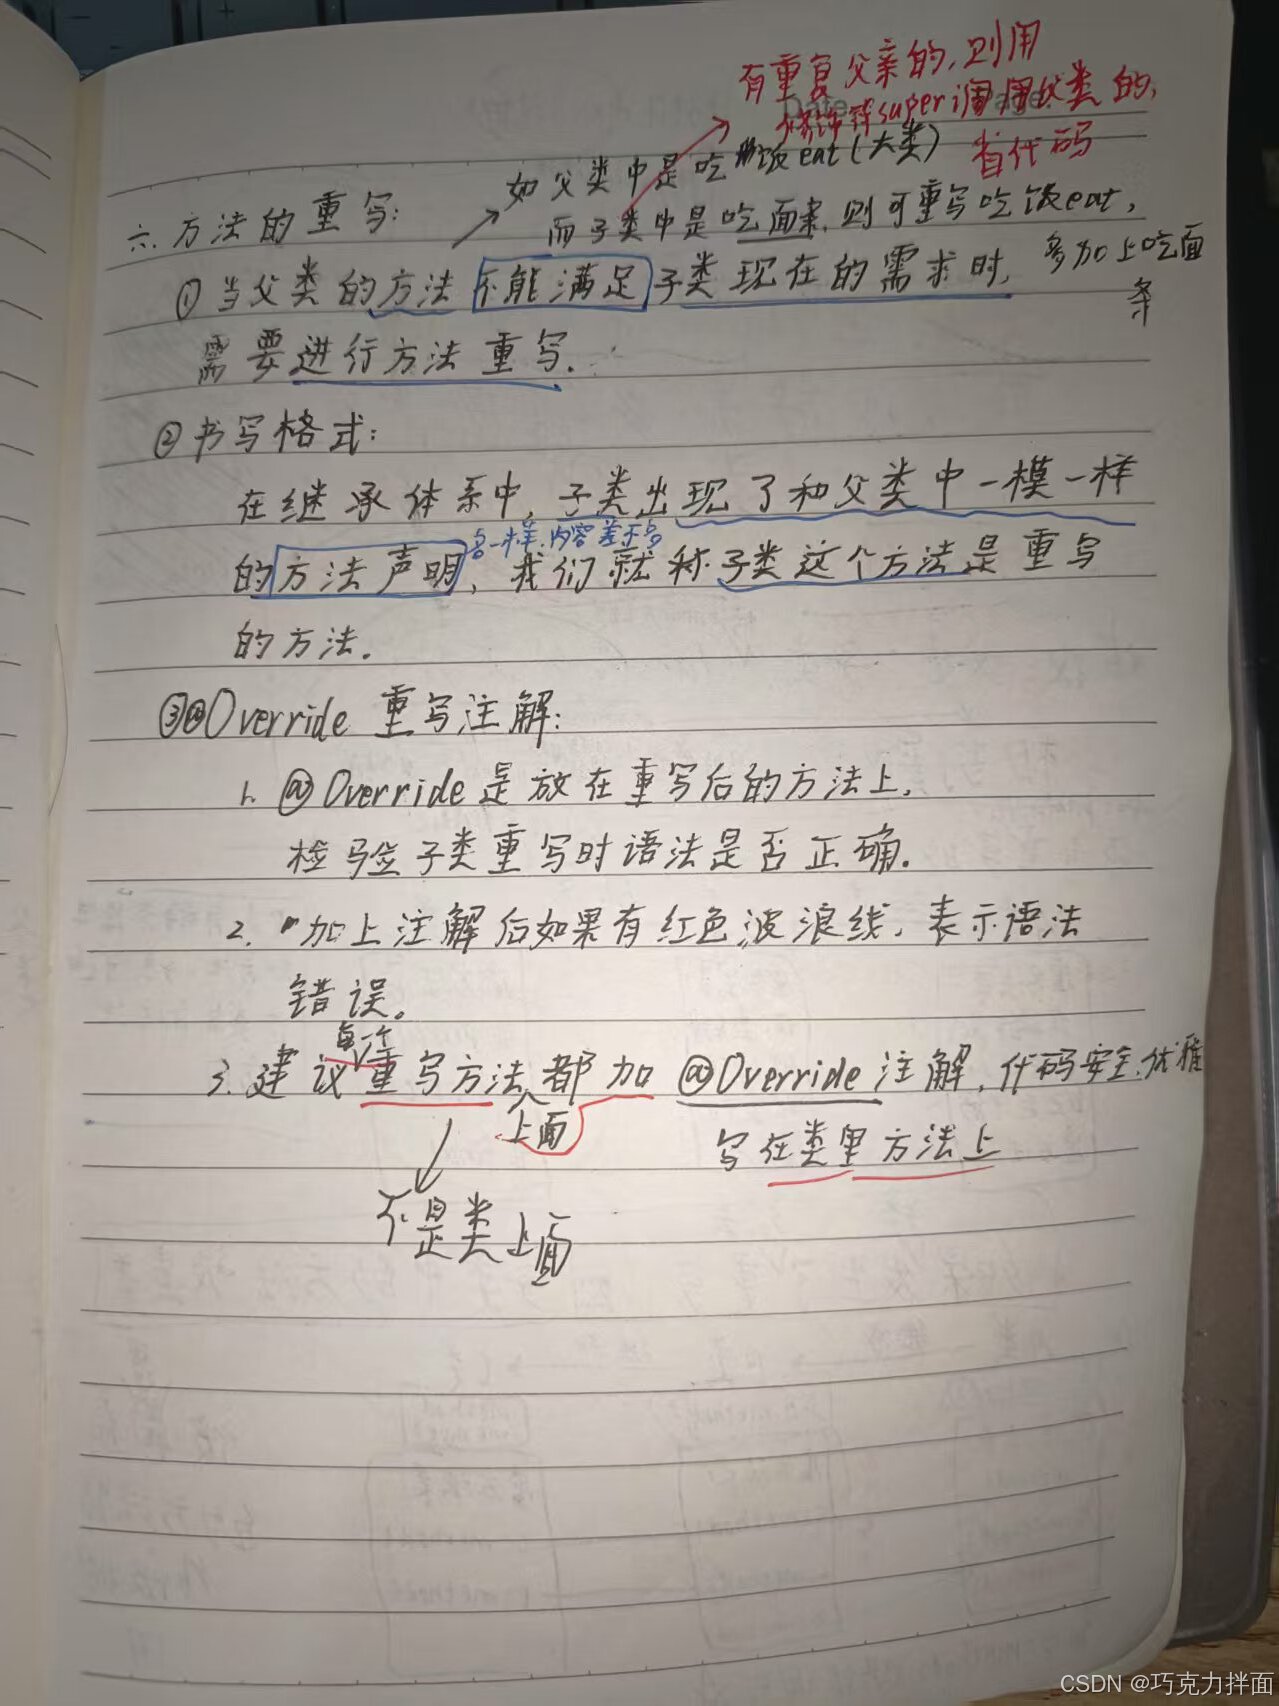 有重复父亲的,则用
super调用父类的,
省代码
如父类中是吃饭eat(大类)
六.方法的重写:
而子类中是吃面条,则可重写吃饭eat,
多加上吃面
条
①当父类的方法不能满足子类现在的需求时,
需要进行方法重写.
②书写格式:
在继承体系中,子类出现了和父类中一模一样
名一样,内容差不多
的方法声明,我们就称子类这个方法是重写
的方法.
③@Override 重写注解:
1. @Override是放在重写后的方法上,
检验子类重写时语法是否正确.
2. 加上注解后如果有红色波浪线,表示语法
错误。
每个
3.建议重写方法都加 @Override 注解,代码安全,优雅
上面
写在类里方法上
不是类上面
CSDN @巧克力拌面